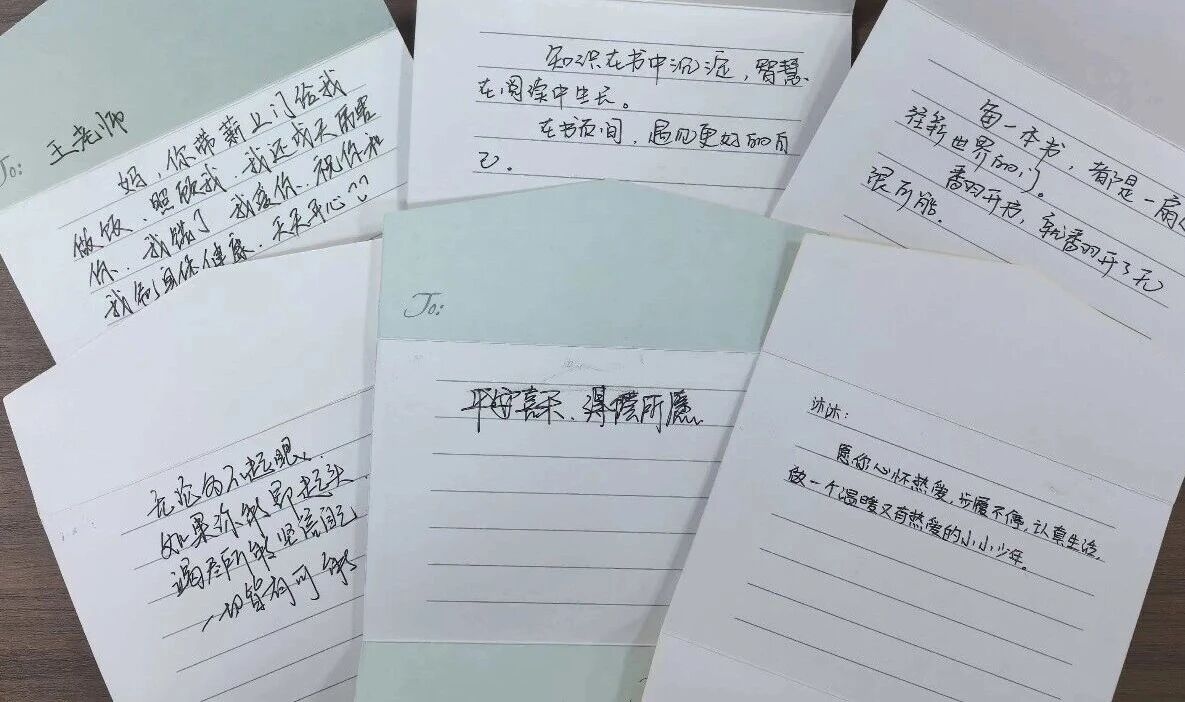 To: 王老师
妈，你带薪上门给我
做饭、照顾我，我还成天
你，我错了，我爱你，祝你和
我们身体健康，天天开心
知识在书中沉淀，智慧
在阅读中生长。
在书页间，遇见更好的自
己。
每一本书，都是一扇
往新世界的门。
翻开书，就翻开了无
限可能。
无论多不起眼
如果你
竭尽所能坚信自己
一切皆有可能
To:
平安喜乐、得偿所愿
沐沐：
愿你心怀热爱，步履不停，认真生活，
做一个温暖又有热爱的小小少年。